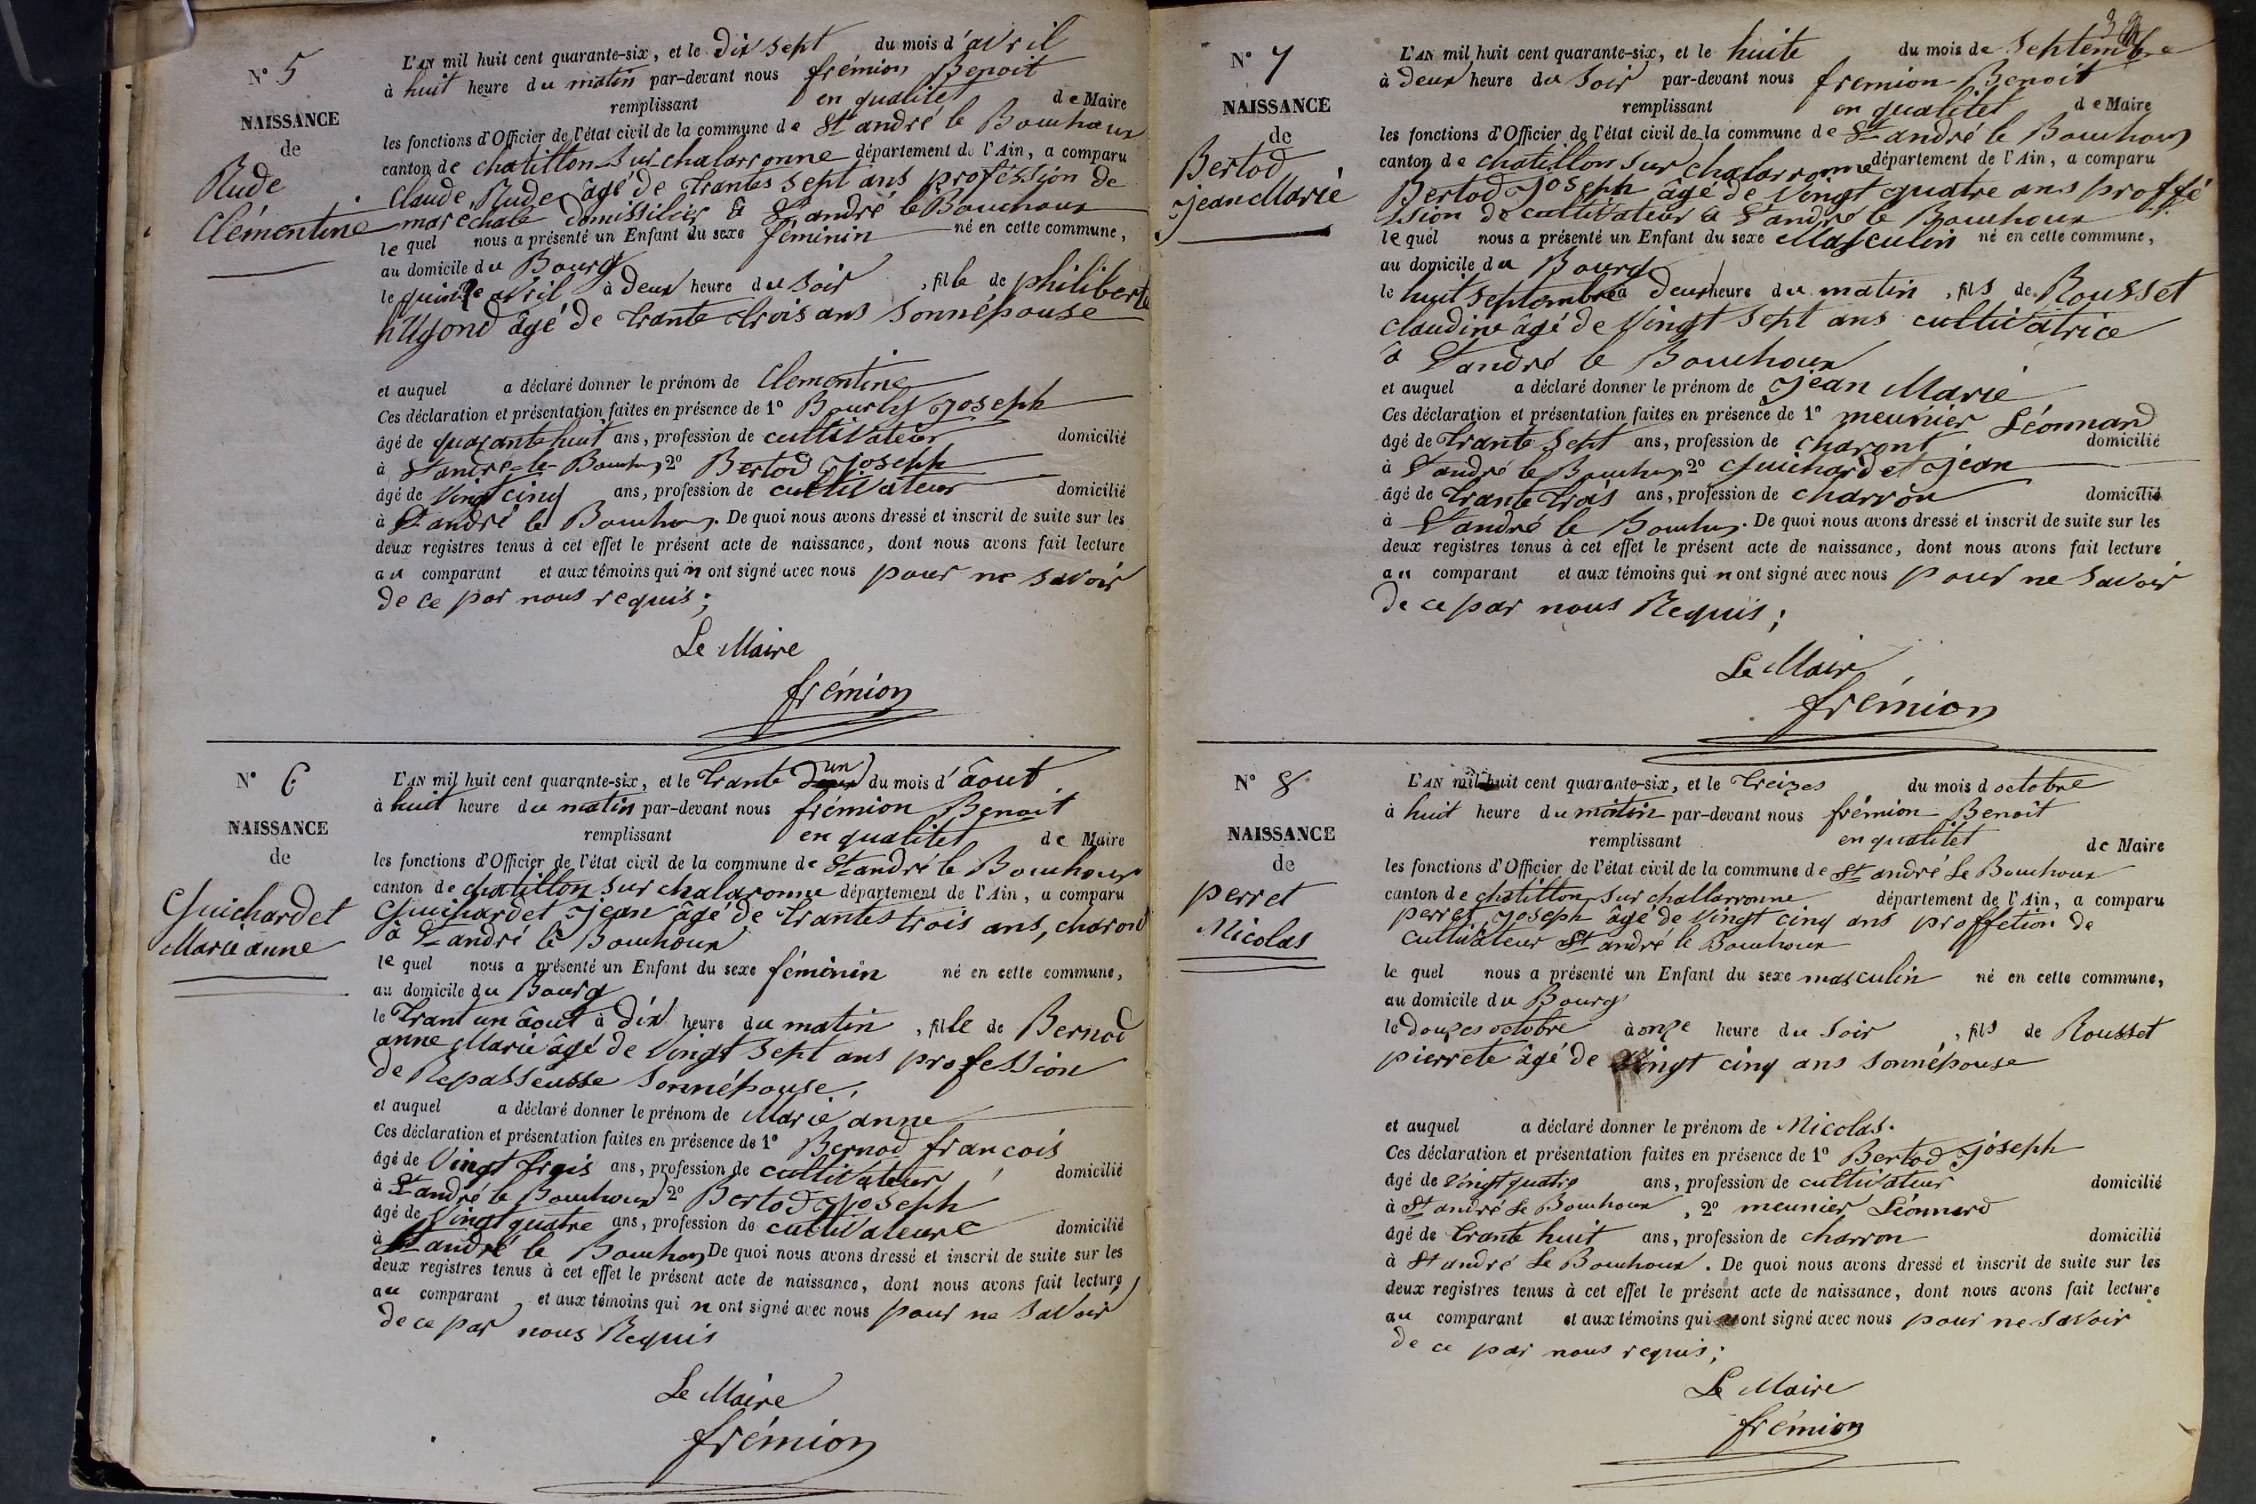 N° 5
NAISSANCE
de
Rude
Clémentine
L'AN mil huit cent quarante-six, et le dix sept du mois d'avril
à huit heure du matin par-devant nous frémion Benoit
remplissant en qualitet de Maire
les fonctions d'Officier de l'état civil de la commune de St andré le Bouchoux
canton de chatillon sur chalarronne département de l'Ain, a comparu
Claude Rude âgé de trantes sept ans proféssion de
maréchale domissilier à St andré le Bouchoux
le quel nous a présenté un Enfant du sexe féminin né en cette commune,
au domicile du Bourg
le quinze avril à deux heure du soir, fille de philiberte
hugond âgé de trante trois ans sonnépouse
et auquel a déclaré donner le prénom de Clementine
Ces déclaration et présentation faites en présence de 1° Joseph
âgé de quarante huit ans, profession de cultivateur domicilié
à St andré le Bouchoux 2° Bertod Joseph
âgé de vingt cinq ans, profession de cultivateur domicilié
à St andré le Bouchoux. De quoi nous avons dressé et inscrit de suite sur les
deux registres tenus à cet effet le présent acte de naissance, dont nous avons fait lecture
au comparant et aux témoins qui n ont signé avec nous pour ne savoir
de ce par nous requis;
Le Maire
frémion
N° 6
NAISSANCE
de
Guichardet
Marie anne
L'AN mil huit cent quarante-six, et le trante un du mois d'âout
à huit heure du matin par-devant nous frémion Benoit
remplissant en qualitet de Maire
les fonctions d'Officier de l'état civil de la commune de St andré le Bouchoux
canton de chatillon sur chalaronne département de l'Ain, a comparu
Guichardet Jean âgé de trantes trois ans, charond
à St andré le Bouchoux
le quel nous a présenté un Enfant du sexe féminin né en cette commune,
au domicile du Bourg
le trant un âout à dix heure du matin, fille de Bernod
anne Marie âgé de vingt sept ans profession
de Repasseusse sonnépouse,
et auquel a déclaré donner le prénom de Marie anne
Ces déclaration et présentation faites en présence de 1° Bernod francois
âgé de vingt trois ans, profession de cultivateur domicilié
à St andré le Bouchoux 2° Bertod Joseph
âgé de vingt quatre ans, profession de cultivateure domicilié
à St andré le Bouchoux De quoi nous avons dressé et inscrit de suite sur les
deux registres tenus à cet effet le présent acte de naissance, dont nous avons fait lecture
au comparant et aux témoins qui n ont signé avec nous pour ne savoir
de ce par nous Requis
Le Maire
frémion
N° 7
NAISSANCE
de
Bertod
Jean Marie
L'AN mil huit cent quarante-six, et le huite du mois de septembre
à deux heure du soir par-devant nous fremion Benoit
remplissant en qualitet de Maire
les fonctions d'Officier de l'état civil de la commune de St andré le Bouchoux
canton de chatillon sur chalarronne département de l'Ain, a comparu
Bertod Joseph âgé de vingt quatre ans proffé
ssion de cultivateur à St andré le Bouchoux
le quel nous a présenté un Enfant du sexe Masculin né en cette commune,
au domicile du Bourg
le huit septembre à deux heure du matin, fils de Rousset
claudine âgé de vingt sept ans cultivatrice
à St andré le Bouchoux
et auquel a déclaré donner le prénom de Jean Marie
Ces déclaration et présentation faites en présence de 1° meunier Léonnard
âgé de trante sept ans, profession de charont domicilié
à St andré le Bouchoux 2° Guichardet Jean
âgé de trante trois ans, profession de charron domicilié
à St andré le Bouchoux. De quoi nous avons dressé et inscrit de suite sur les
deux registres tenus à cet effet le présent acte de naissance, dont nous avons fait lecture
au comparant et aux témoins qui n ont signé avec nous pour ne savoir
de ce par nous Requis;
Le Maire
frémion
N° 8
NAISSANCE
de
perret
Nicolas
L'AN mil huit cent quarante-six, et le treizes du mois d octobre
à huit heure du matin par-devant nous frémion Benoit
remplissant en qualitet de Maire
les fonctions d'Officier de l'état civil de la commune de St andré Le Bouchoux
canton de chatillon sur challarronne département de l'Ain, a comparu
perret Joseph âgé de vingt cinq ans proffetion de
cultivateur St andré le Bouchoux
le quel nous a présenté un Enfant du sexe masculin né en cette commune,
au domicile du Bourg
le douzes octobre à onze heure du soir, fils de Rousset
pierrete âgé de vingt cinq ans sonnépouse
et auquel a déclaré donner le prénom de Nicolas.
Ces déclaration et présentation faites en présence de 1° Bertod Joseph
âgé de vingt quatre ans, profession de cultivateur domicilié
à St andré Le Bouchoux, 2° meunier Léonnard
âgé de trante huit ans, profession de charron domicilié
à St andré Le Bouchoux. De quoi nous avons dressé et inscrit de suite sur les
deux registres tenus à cet effet le présent acte de naissance, dont nous avons fait lecture
au comparant et aux témoins qui n ont signé avec nous pour ne savoir
de ce par nous requis;
Le Maire
frémion